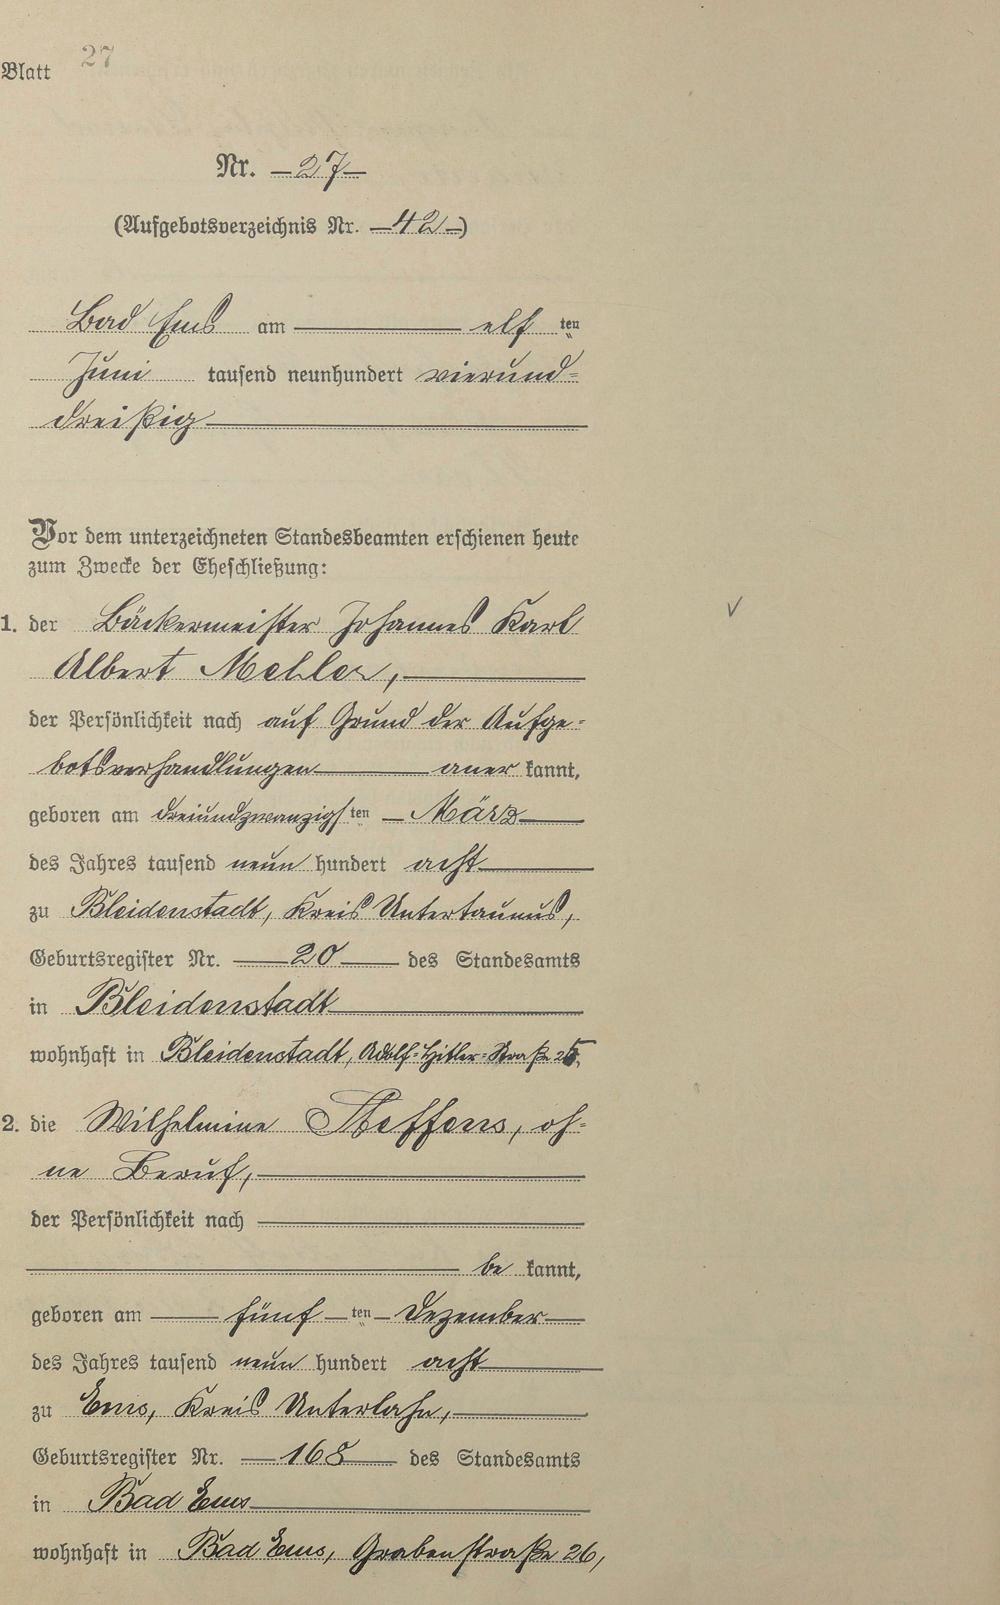 Blatt 27
Nr. 27
(Aufgebotsverzeichnis Nr. 42)
Bad Ems am elf ten
Juni tausend neunhundert vierund=
dreißig
Vor dem unterzeichneten Standesbeamten erschienen heute
zum Zwecke der Eheschließung:
1. der Bäckermeister Johannes Karl
Albert Mehler,
der Persönlichkeit nach auf Grund der Aufge=
botsverhandlungen aner kannt,
geboren am dreiundzwanzigsten März
des Jahres tausend neun hundert acht
zu Bleidenstadt, Kreis Untertaunus,
Geburtsregister Nr. 20 des Standesamts
in Bleidenstadt
wohnhaft in Bleidenstadt, Adolf=Hitler=Straße 25,
2. die Wilhelmine Steffens, oh=
ne Beruf,
der Persönlichkeit nach
be kannt,
geboren am fünf ten Dezember
des Jahres tausend neun hundert acht
zu Ems, Kreis Unterlahn,
Geburtsregister Nr. 168 des Standesamts
in Bad Ems
wohnhaft in Bad Ems, Grabenstraße 26,